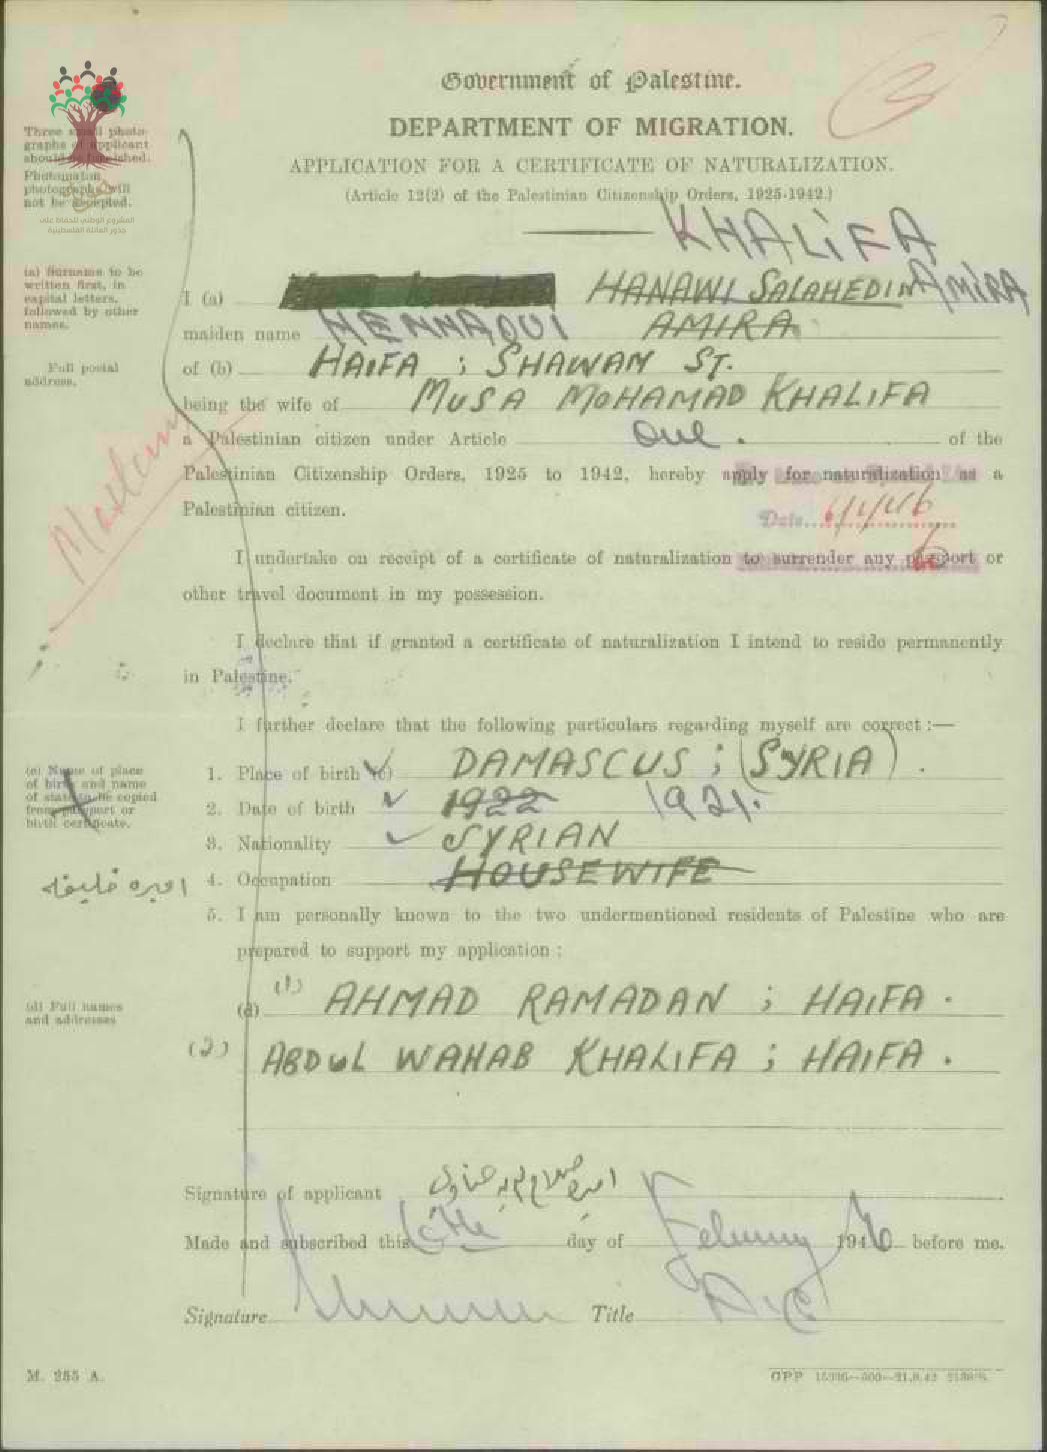 Government of Palestine.
DEPARTMENT OF MIGRATION.
APPLICATION FOR A CERTIFICATE OF NATURALIZATION.
(Article 12(2) of the Palestinian Citizenship Orders, 1925-1942.)
Three small photo-
graphs of applicant
should be furnished.
Photomaton
photographs will
not be accepted.
المشروع الوطني للحفاظ على
جذور العائلة الفلسطينية
KHALIFA
(a) Surname to be
written first, in
capital letters,
followed by other
names.
I (a) HANAWI SALAHEDIN AMIRA
maiden name HENNAOUI AMIRA
Full postal
address.
of (b) HAIFA ; SHAWAN ST.
being the wife of MUSA MOHAMAD KHALIFA
a Palestinian citizen under Article One. of the
Palestinian Citizenship Orders, 1925 to 1942, hereby apply for naturalization as a
Palestinian citizen.
Date
I undertake on receipt of a certificate of naturalization to surrender any passport or
other travel document in my possession.
I declare that if granted a certificate of naturalization I intend to reside permanently
in Palestine.
I further declare that the following particulars regarding myself are correct :—
(c) Name of place
of birth and name
of state to be copied
from passport or
birth certificate.
1. Place of birth (c) DAMASCUS ; (SYRIA) .
2. Date of birth 1922 1921.
3. Nationality SYRIAN
4. Occupation HOUSEWIFE
اميره خليفه
5. I am personally known to the two undermentioned residents of Palestine who are
prepared to support my application :
(d) Full names
and addresses
(d) (1) AHMAD RAMADAN ; HAIFA .
(2) ABDUL WAHAB KHALIFA ; HAIFA .
Signature of applicant
Made and subscribed this day of February 1946 before me.
Signature Title
M. 255 A.
GPP